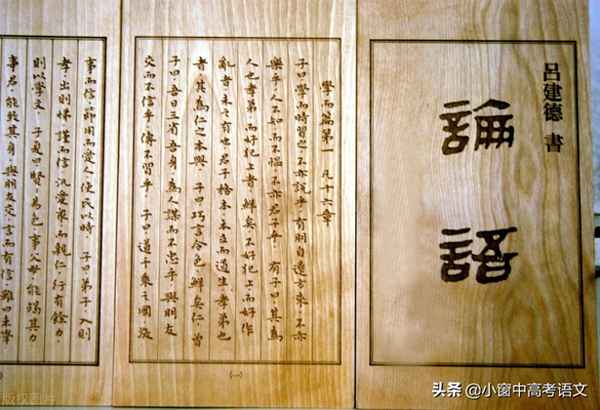 呂建德 書
論語
學而篇第一 凡十六章
子曰學而時習之不亦說乎．有朋自遠方來．不亦
樂乎．人不知而不慍．不亦君子乎． 有子曰．其為
人也孝弟．而好犯上者．鮮矣．不好犯上．而好作
亂者．未之有也．君子務本．本立而道生．孝弟也
者．其為仁之本與． 子曰．巧言令色．鮮矣仁． 曾
子曰．吾日三省吾身．為人謀而不忠乎．與朋友
交而不信乎．傳不習乎． 子曰．道千乘之國．敬
(一)
事而信．節用而愛人．使民以時． 子曰．弟子．入則
孝．出則悌．謹而信．汎愛眾．而親仁．行有餘力．
則以學文． 子夏曰．賢賢易色．事父母．能竭其力．
事君．能致其身．與朋友交．言而有信．雖曰未學
版权图片
头条 @小窗中高考语文